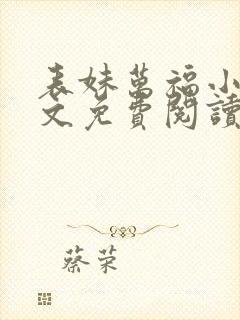 表妹萬福小
文免費閱讀
蔡荣